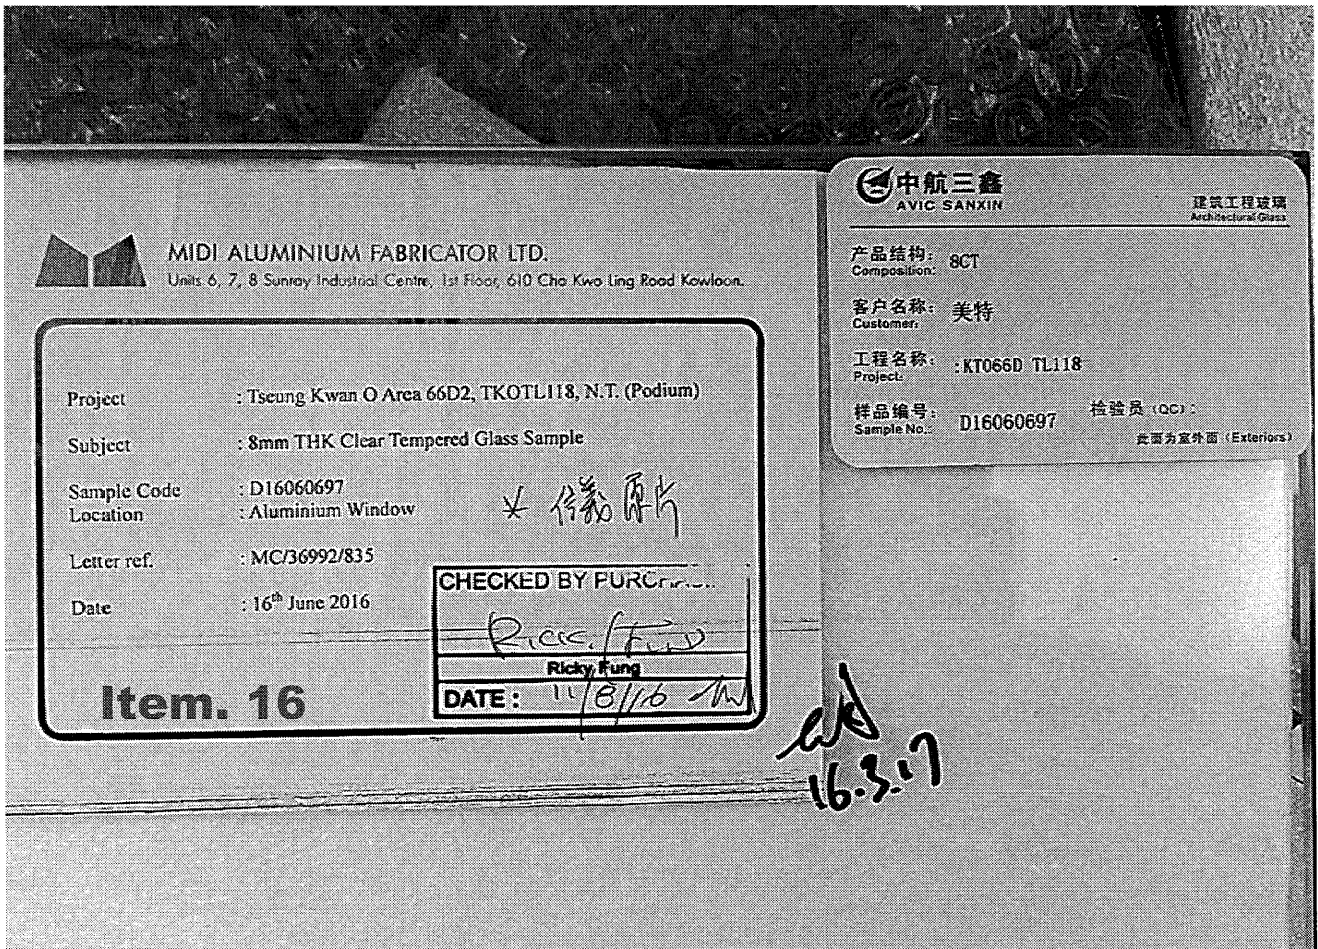 MIDI ALUMINIUM FABRICATOR LTD.
Units 6, 7, 8 Sunray Industrial Centre, 1st Floor, 610 Cha Kwo Ling Road Kowloon.
Project : Tseung Kwan O Area 66D2, TKOTL118, N.T. (Podium)
Subject : 8mm THK Clear Tempered Glass Sample
Sample Code : D16060697
Location : Aluminium Window
Letter ref. : MC/36992/835
Date : 16th June 2016
Item. 16
原片
CHECKED BY
Ricky Fung
DATE : 11/8/16
16.3.17
中航三鑫
AVIC SANXIN
建筑工程玻璃
Architectural Glass
产品结构: 8CT
Composition:
客户名称: 美特
Customer:
工程名称: :KT066D TL118
Project:
样品编号: D16060697 检验员 (QC) :
Sample No.:
此面为室外面 (Exteriors)